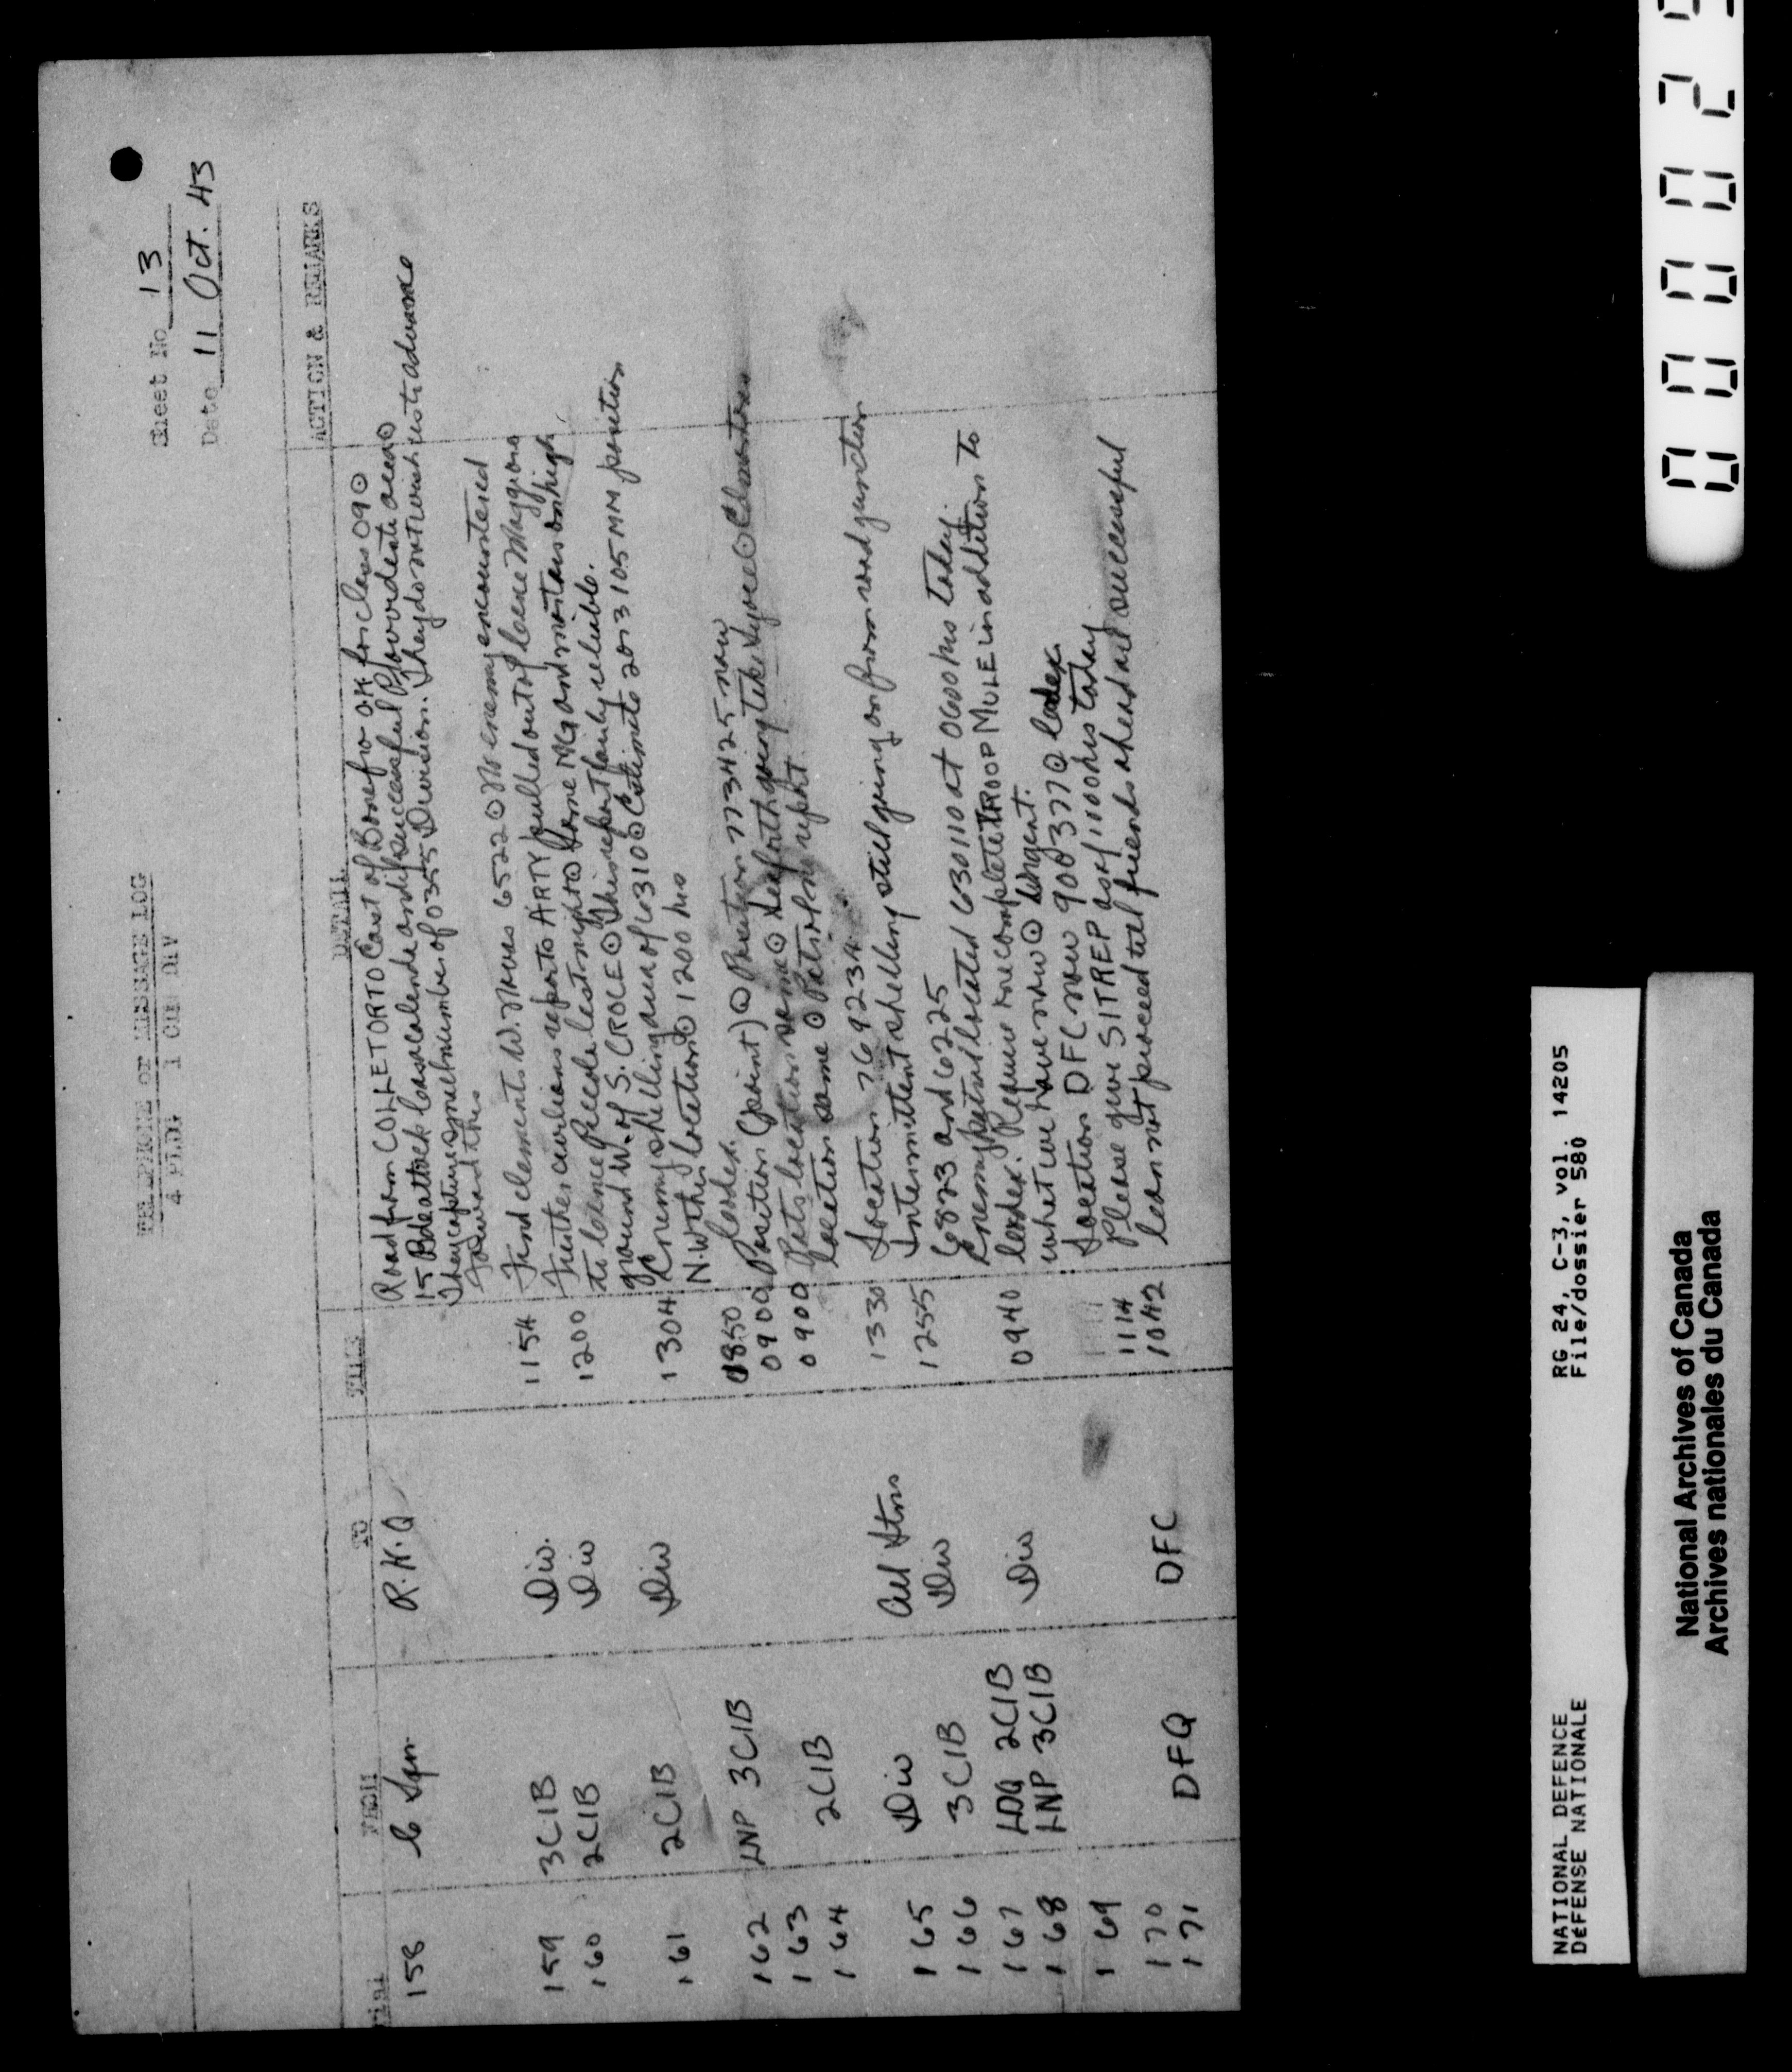 TELEPHONE OR MESSAGE LOG
4 PLDG 1 CDN DIV
Sheet No 13
Date 11 Oct. 43
TIME DETAIL ACTION & REMARKS
FROM TO
158 C Sqn. R.H.Q Road from COLLETORTO East of Bonefro O.K. for class 09 ⊙
15 Bde attack Casacalenda and if successful Provvidenti area ⊙
They capture small number of 0355 Division. They do not wish us to advance
forward this
159 3CIB Div. 1154 Fwd elements W. Novas 6522 ⊙ No enemy encountered
160 2CIB Div 1200 Further civilians report to ARTY pulled out of Maggiore
to Piccola last night ⊙ Some MG and mortars on high
ground W. of S. CROCE ⊙ This report fairly reliable.
161 2CIB Div 1304 Enemy shelling area of 6310 ⊙ Estimate 2 or 3 105 MM position
N.W. their location ⊙ 1200 hrs
162 LNP 3CIB 0850
163 0900 Position (point) ⊙ Position 773425 now
0900 location same ⊙ Seaforth
164 2CIB location same ⊙ Patrol report
165 Div All Stns 1330 Location 769234.
166 3CIB Div 1255 Intermittent shelling still going on from road junction
6823 and 6225
167 LDQ 2CIB Div 0940 Enemy patrol located 630110 at 0600 hrs today
168 LNP 3CIB Require one complete TROOP MULE in addition to
what we have now ⊙ Urgent.
169 Location DFC now 900377 ⊙
170 1114 Please give SITREP as of 1100 hrs today
171 DFQ DFC 1042 Can not proceed till friends ahead are successful
NATIONAL DEFENCE RG 24, C-3, vol. 14205
DÉFENSE NATIONALE File/dossier 580
National Archives of Canada
Archives nationales du Canada